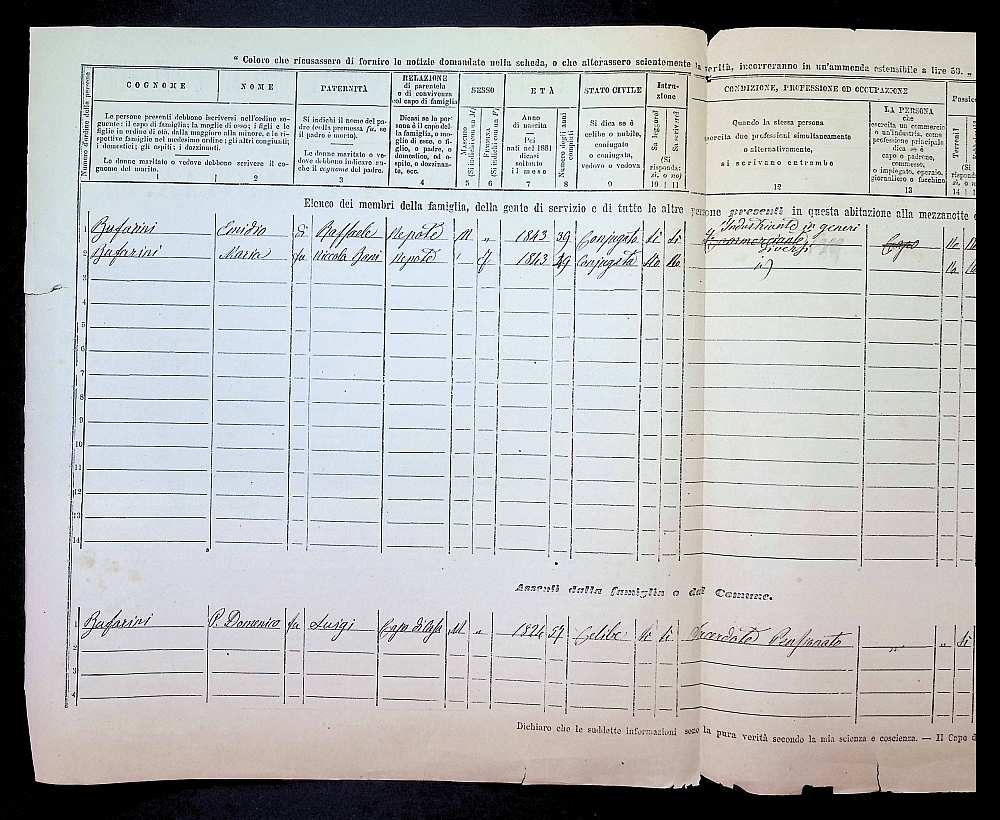 “ Coloro che ricusassero di fornire le notizie domandate nella scheda, o che alterassero scientemente la verità, incorreranno in un'ammenda estensibile a lire 50. „
Numero d'ordine delle persone
COGNOME
NOME
PATERNITÀ
RELAZIONE
di parentela
o di convivenza
col capo di famiglia
SESSO
ETÀ
STATO CIVILE
Istruzione
CONDIZIONE, PROFESSIONE OD OCCUPAZIONE
Le persone presenti debbono iscriversi nell'ordine seguente: il capo di famiglia; la moglie di esso; i figli e le figlie in ordine di età, dalla maggiore alla minore, e le rispettive famiglie nel medesimo ordine; gli altri congiunti; i domestici; gli ospiti; i dozzinanti.
Le donne maritate o vedove debbono scrivere il cognome del marito.
Si indichi il nome del padre (colla premessa fu, se il padre è morto).
Le donne maritate o vedove debbono indicare anche il cognome del padre.
Dicasi se la persona è il capo della famiglia, o moglie di esso, o figlio, o padre, o domestico, od ospite, o dozzinante, ecc.
Maschio
(Si indichi con un M)
Femmina
(Si indichi con un F)
Anno
di nascita
Pei
nati nel 1881
dicasi
soltanto
il mese
Numero degli anni
compiuti
Si dica se è
celibe o nubile,
coniugato
o coniugata,
vedovo o vedova
Sa leggere?
Sa scrivere?
(Si
risponda:
sì, o no)
Quando la stessa persona
esercita due professioni simultaneamente
o alternativamente,
si scrivano entrambe
LA PERSONA
che
esercita un commercio
o un'industria, come
professione principale
dica se è
capo o padrone,
commesso,
o impiegato, operaio,
giornaliero o facchino
Terreni?
(Si
1 2 3 4 5 6 7 8 9 10 11 12 13 14
Elenco dei membri della famiglia, della gente di servizio e di tutte le altre persone presenti in questa abitazione alla mezzanotte
Industriante in generi
Bufarini Emidio di Raffaele Nepote M „ 1843 39 Conjugato si si Commerciante Capo No
diversi
2 Bufarini Maria fu Niccola Boni Nepote F 1843 39 Conjugata No No id No
3
4
5
6
7
8
9
10
11
12
13
14
Assenti dalla famiglia o dal Comune.
1 Bufarini P. Domenico fu Luigi Capo di Casa M „ 1824 57 Celibe si si Sacerdote Pensionato „ „ si
2
3
4
Dichiaro che le suddette informazioni sono la pura verità secondo la mia scienza e coscienza. — Il Capo